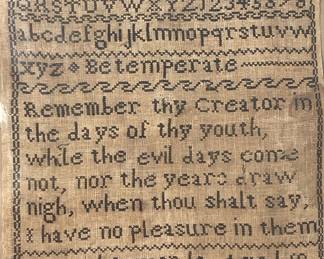 QRSTUVWXYZ123456789
abcdefghijklmnopqrstuvw
xyz Be temperate
Remember thy Creator in
the days of thy youth,
while the evil days come
not, nor the years draw
nigh, when thou shalt say,
I have no pleasure in them